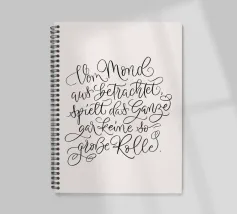 Vom Mond
aus betrachtet,
spielt das Ganze
gar keine so
große Rolle.